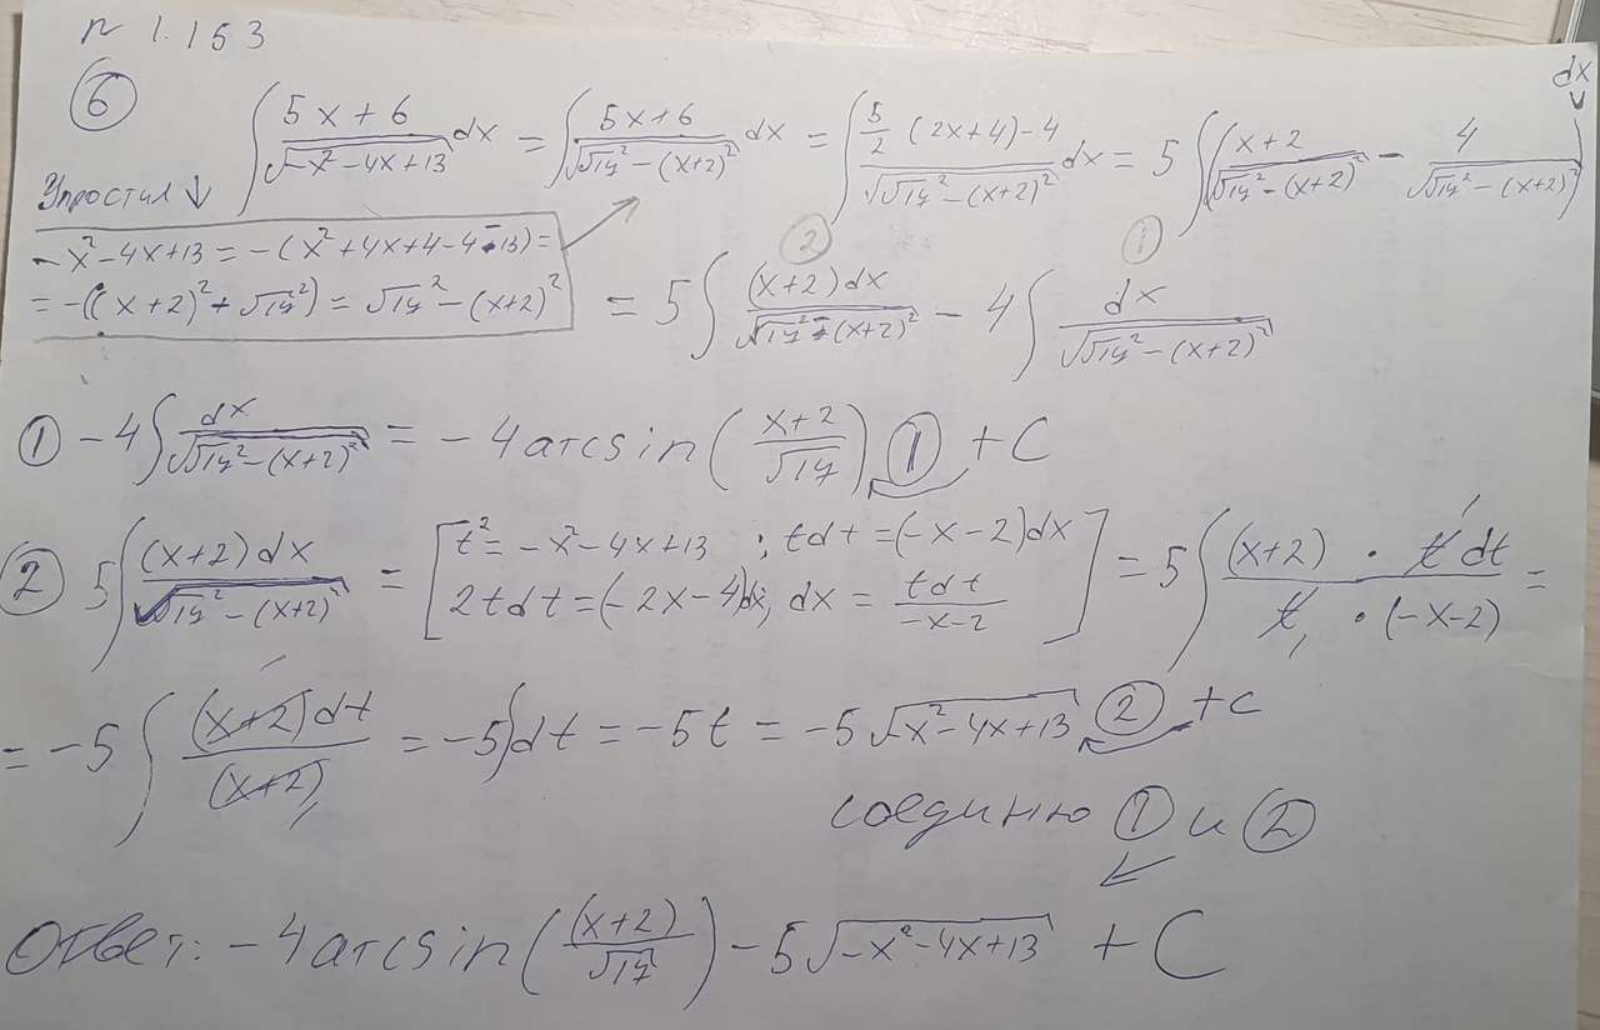 n 1.153
⑥ ∫ (5x+6)/√(-x²-4x+13) dx = ∫ (5x+6)/√(√17² - (x+2)²) dx = ∫ (5/2 (2x+4) - 4)/√(√17² - (x+2)²) dx = 5 ∫ ((x+2)/√(√17² - (x+2)²) - 4/√(√17² - (x+2)²)) dx
Упростил ↓
-x²-4x+13 = -(x²+4x+4-4-13) =
= -((x+2)² + √17²) = √17² - (x+2)²
② ①
= 5 ∫ (x+2)dx/√(√17² - (x+2)²) - 4 ∫ dx/√(√17² - (x+2)²)
① -4 ∫ dx/√(√17² - (x+2)²) = -4 arcsin((x+2)/√17) ① + C
② 5 ∫ (x+2)dx/√(√17² - (x+2)²) = [t² = -x²-4x+13 ; tdt = (-x-2)dx
2tdt = (-2x-4)dx; dx = tdt/(-x-2)] = 5 ∫ (x+2) · t dt/(t · (-x-2)) =
= -5 ∫ (x+2)dt/(x+2) = -5∫dt = -5t = -5√(-x²-4x+13) ② + C
соединяю ① и ②
Ответ: -4 arcsin((x+2)/√17) - 5√(-x²-4x+13) + C